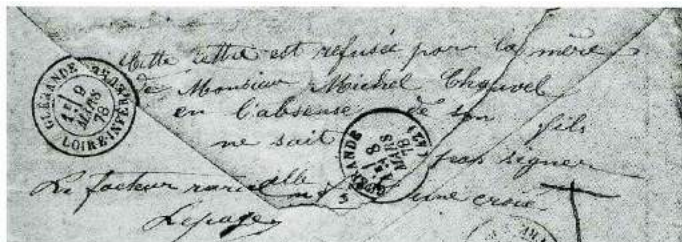 Cette lettre est refusée par la mère
de Monsieur Michel Chauvel
en l'absense de son fils
ne sait pas signer
Le facteur rural
une croix
Lepage
GUÉRANDE
1E
9
MARS
78
LOIRE-INFÉRIEURE
GUÉRANDE
8
MARS
78